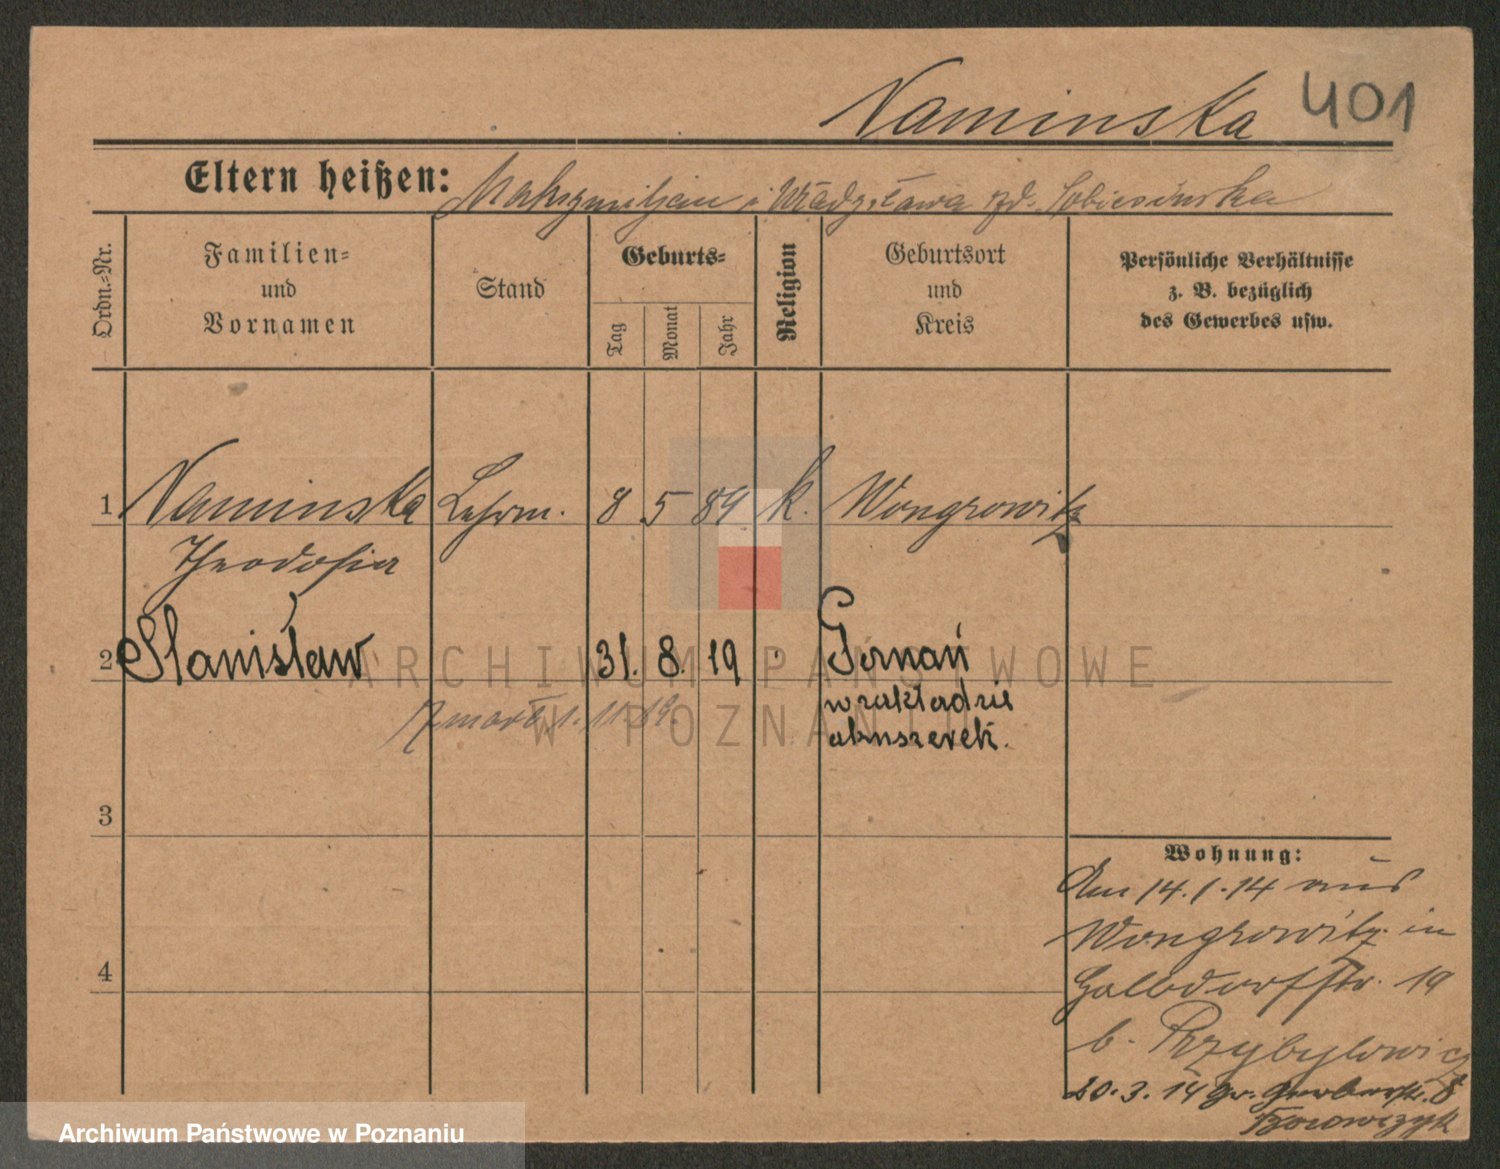 Naminska 401
Eltern heißen: Maksymiljan i Władysława zd. Sobiesińska
Ordn.-Nr.
Familien-
und
Vornamen
Stand
Geburts-
Tag
Monat
Jahr
Religion
Geburtsort
und
Kreis
Persönliche Verhältnisse
z. B. bezüglich
des Gewerbes usw.
1 Naminska Lehrm. 8 5 89 k. Wongrowitz
Theodosia
2 Stanisław 31. 8. 19 Poznań
w zakładzie
akuszerek.
zmarł 1. 11. 19.
3
4
Wohnung:
Am 14.1.14 aus
Wongrowitz in
Halbdorfstr. 19
b. Przybylowicz
20.3.14 Gr. Gerberstr. 8
Borowczyk
ARCHIWUM PAŃSTWOWE
W POZNANIU
Archiwum Państwowe w Poznaniu